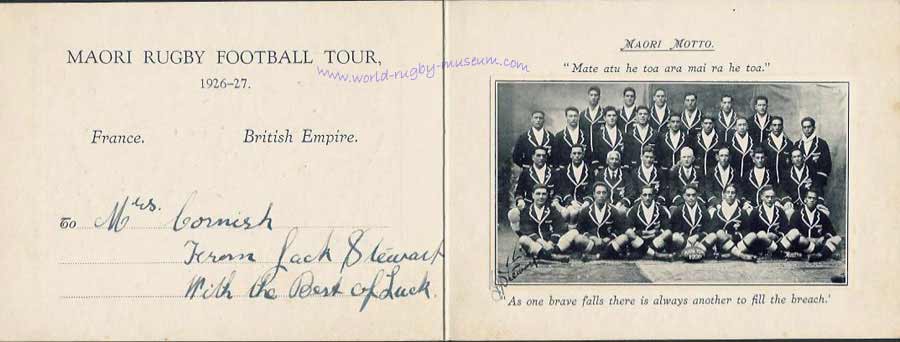 MAORI RUGBY FOOTBALL TOUR,
1926-27.
www.world-rugby-museum.com
France. British Empire.
To Mrs. Cornish
From Jack Stewart
With the Best of Luck.
MAORI MOTTO.
"Mate atu he toa ara mai ra he toa."
1926
Stewart
'As one brave falls there is always another to fill the breach.'